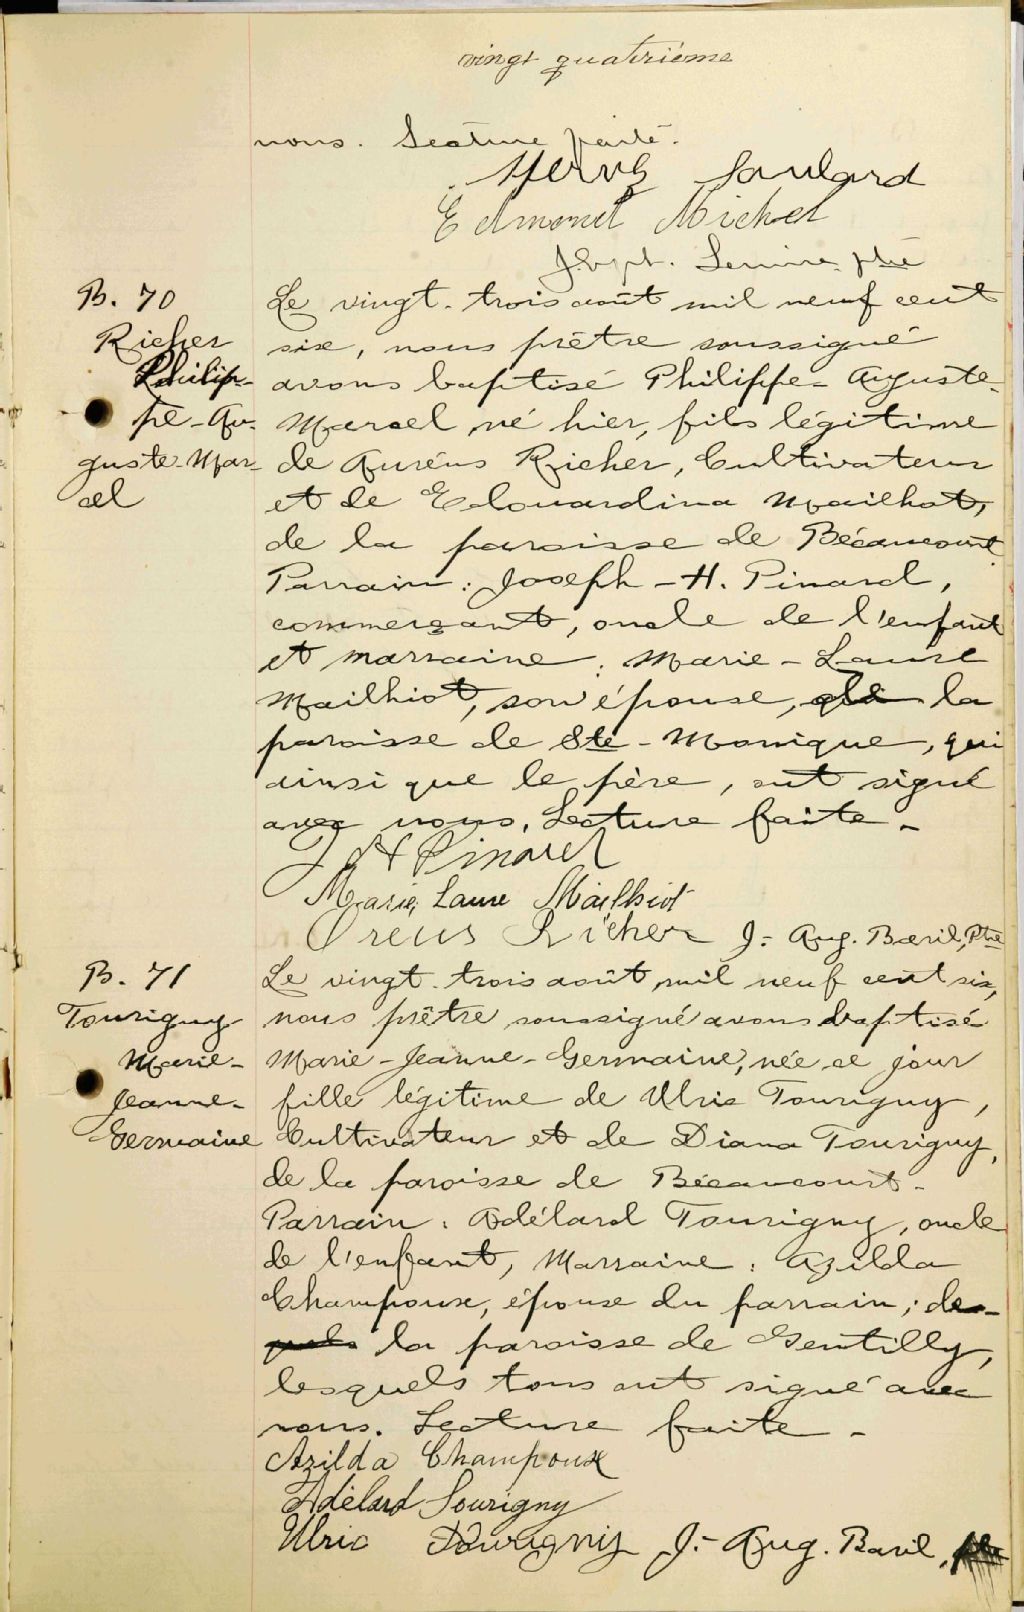 vingt quatrième
nous. Lecture faite.
Hervé Soulard
Edmond Michel
J. Bpt. ptre
B. 70
Richer
Philip-
pe-Au-
guste-Mar-
cel
Le vingt-trois août mil neuf cent
six, nous prêtre soussigné
avons baptisé Philippe-Auguste-
Marcel, né hier, fils légitime
de Auréus Richer, Cultivateur
et de Edouardina Mailhot,
de la paroisse de Bécancourt
Parrain: Joseph-H. Pinard,
commerçant, oncle de l'enfant
et marraine: Marie-Laure
Mailhiot, son épouse, de la
paroisse de Ste-Monique, qui
ainsi que le père, ont signé
avec nous. Lecture faite.
J H Pinard
Marie Laure Mailhiot
Oreus Richer J.-Aug. Baril, Ptre
B. 71
Tourigny
Marie-
Jeanne-
Germaine
Le vingt-trois août, mil neuf cent six,
nous prêtre soussigné avons baptisé
Marie-Jeanne-Germaine, née ce jour
fille légitime de Ulric Tourigny,
Cultivateur et de Diana Tourigny,
de la paroisse de Bécancourt-
Parrain: Adélard Tourigny, oncle
de l'enfant, Marraine: Azilda
Champoux, épouse du parrain; de
la paroisse de Gentilly,
lesquels tous ont signé avec
nous. Lecture faite-
Azilda Champoux
Adélard Tourigny
Ulric Tourigny J.-Aug. Baril, ptre